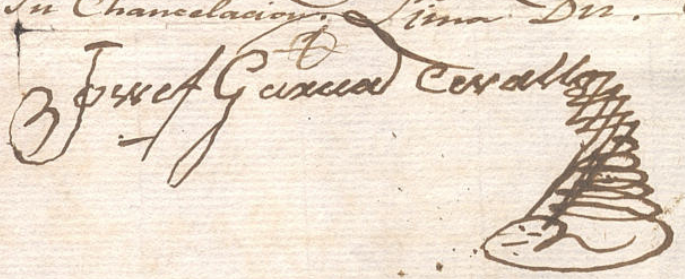 su Chancelacion. Lima Dn.
Josef Garcia Cevallos